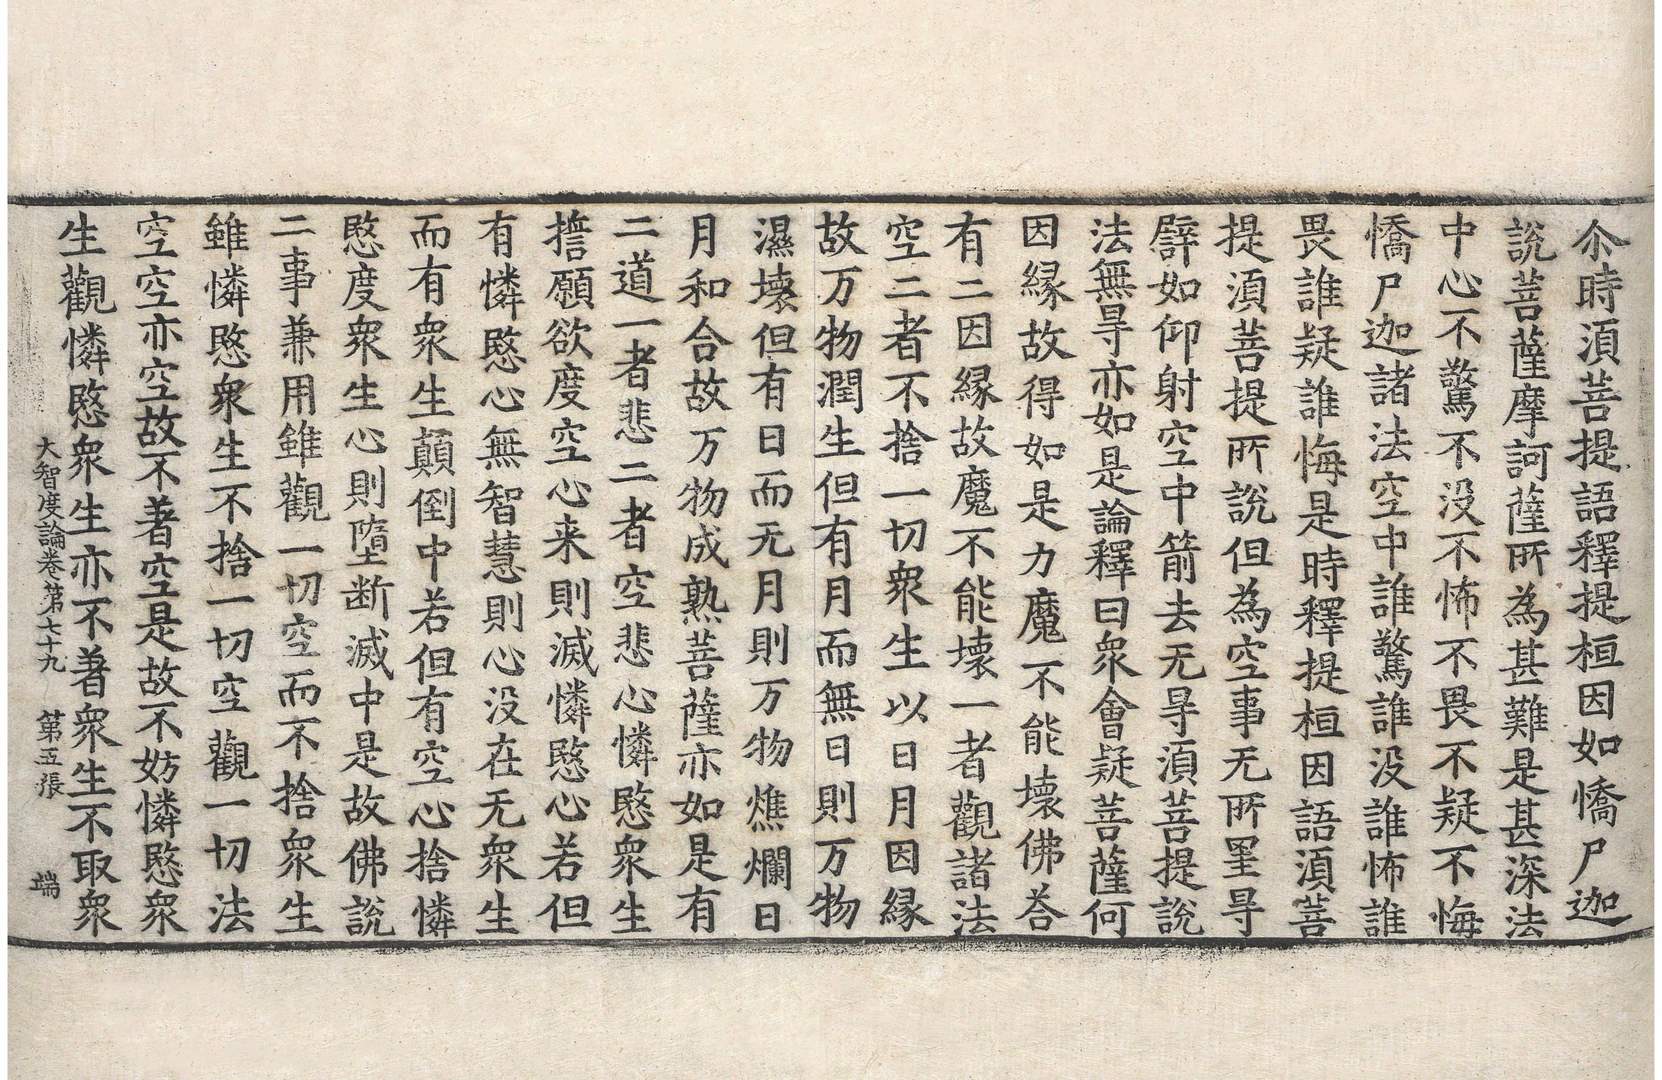 尒時湏菩提語釋提桓因如憍尸迦
說菩薩摩訶薩所為甚難是甚深法
中心不驚不没不怖不畏不疑不悔
憍尸迦諸法空中誰驚誰没誰怖誰
畏誰疑誰悔是時釋提桓因語湏菩
提湏菩提所說但為空事无所罣㝵
譬如仰射空中箭去无㝵湏菩提說
法無㝵亦如是論釋曰衆會疑菩薩何
因縁故得如是力魔不能壞佛荅
有二因縁故魔不能壞一者觀諸法
空二者不捨一切衆生以日月因縁
故万物潤生但有月而無日則万物
濕壞但有日而无月則万物燋爛日
月和合故万物成熟菩薩亦如是有
二道一者悲二者空悲心憐愍衆生
擔願欲度空心来則滅憐愍心若但
有憐愍心無智慧則心没在无衆生
而有衆生顛倒中若但有空心捨憐
愍度衆生心則墮断滅中是故佛說
二事兼用雖觀一切空而不捨衆生
雖憐愍衆生不捨一切空觀一切法
空空亦空故不著空是故不妨憐愍衆
生觀憐愍衆生亦不著衆生不取衆
大智度論卷第七十九 第五張 端